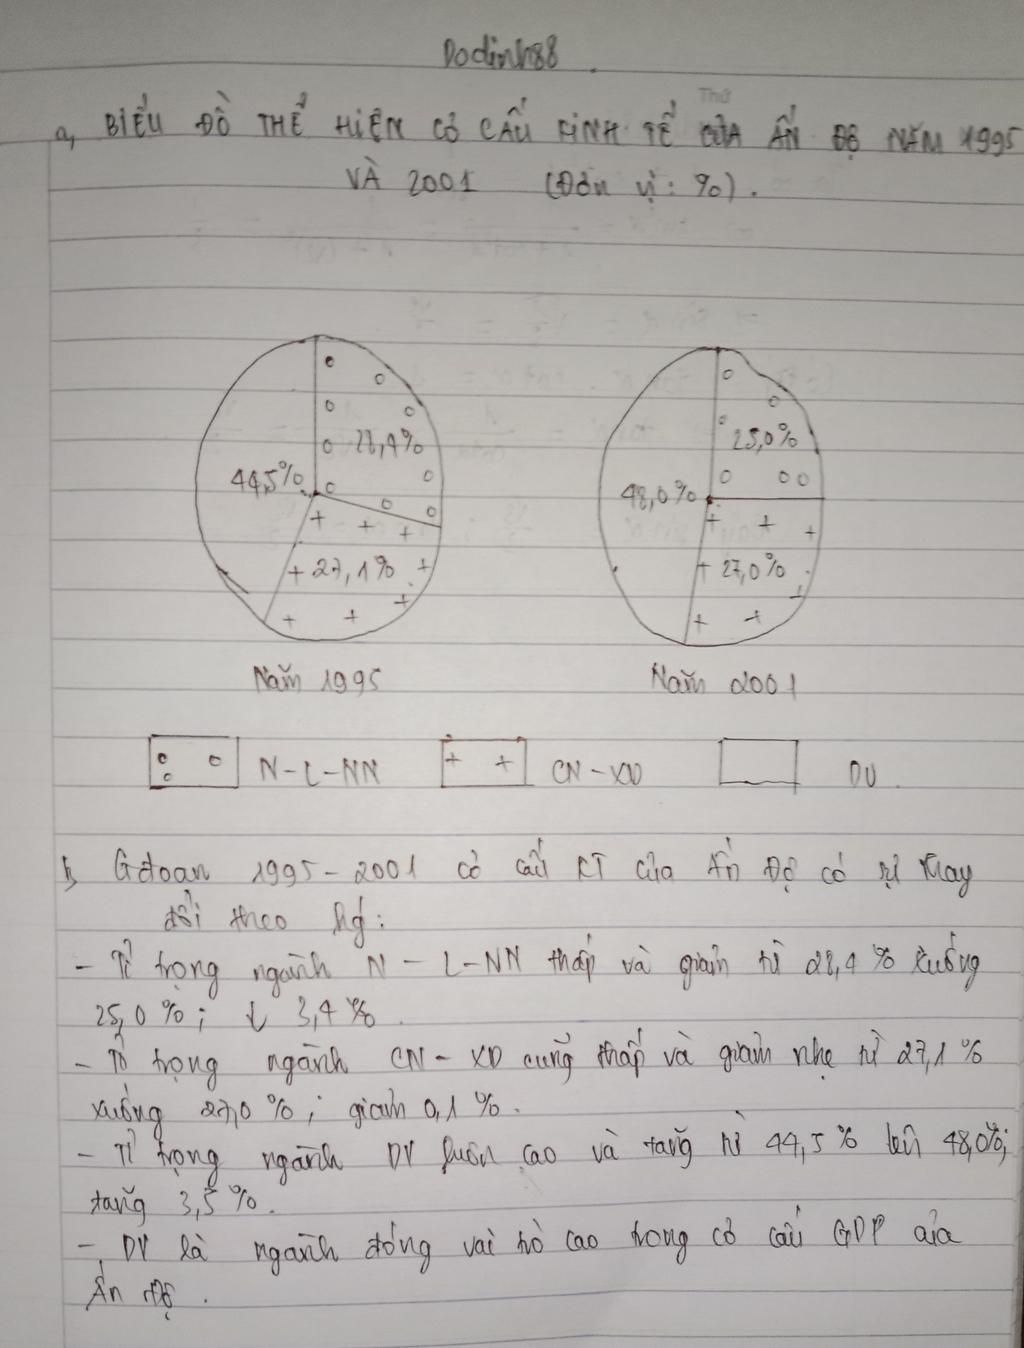 Dodinh88
Thứ
a, BIỂU ĐỒ THỂ HIỆN CƠ CẤU KINH TẾ CỦA ẤN ĐỘ NĂM 1995
VÀ 2001 (Đơn vị: %).
28,4%
44,5%
27,1%
25,0%
48,0%
27,0%
Năm 1995
Năm 2001
N-L-NN
CN-XD
DV
b, Gđoạn 1995-2001 cơ cấu KT của Ấn Độ có sự thay
đổi theo hg:
- Tỉ trọng ngành N-L-NN thấp và giảm từ 28,4% xuống
25,0%; ↓ 3,4%.
- Tỉ trọng ngành CN-XD cũng thấp và giảm nhẹ từ 27,1%
xuống 27,0%; giảm 0,1%.
- Tỉ trọng ngành DV luôn cao và tăng từ 44,5% lên 48,0%;
tăng 3,5%.
- DV là ngành đóng vai trò cao trong cơ cấu GDP của
Ấn độ.